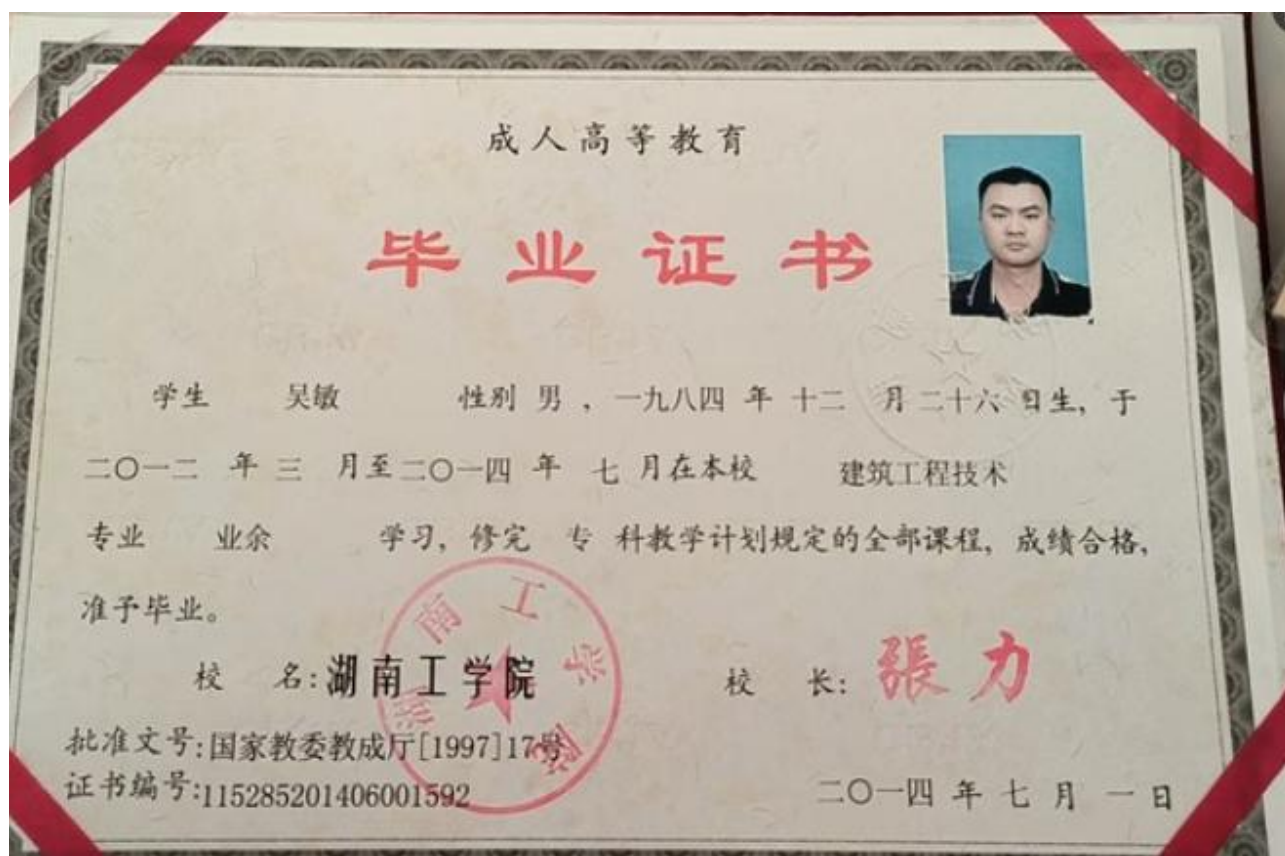 成人高等教育
毕业证书
学生 吴敏 性别 男 ，一九八四 年 十二 月 二十六 日生，于
二〇一二 年 三 月至 二〇一四 年 七 月在本校 建筑工程技术
专业 业余 学习，修完 专 科教学计划规定的全部课程，成绩合格，
准予毕业。
校 名：湖南工学院 校 长：張力
湖南工学院
批准文号：国家教委教成厅[1997]17号
证书编号：115285201406001592 二〇一四 年 七 月 一 日